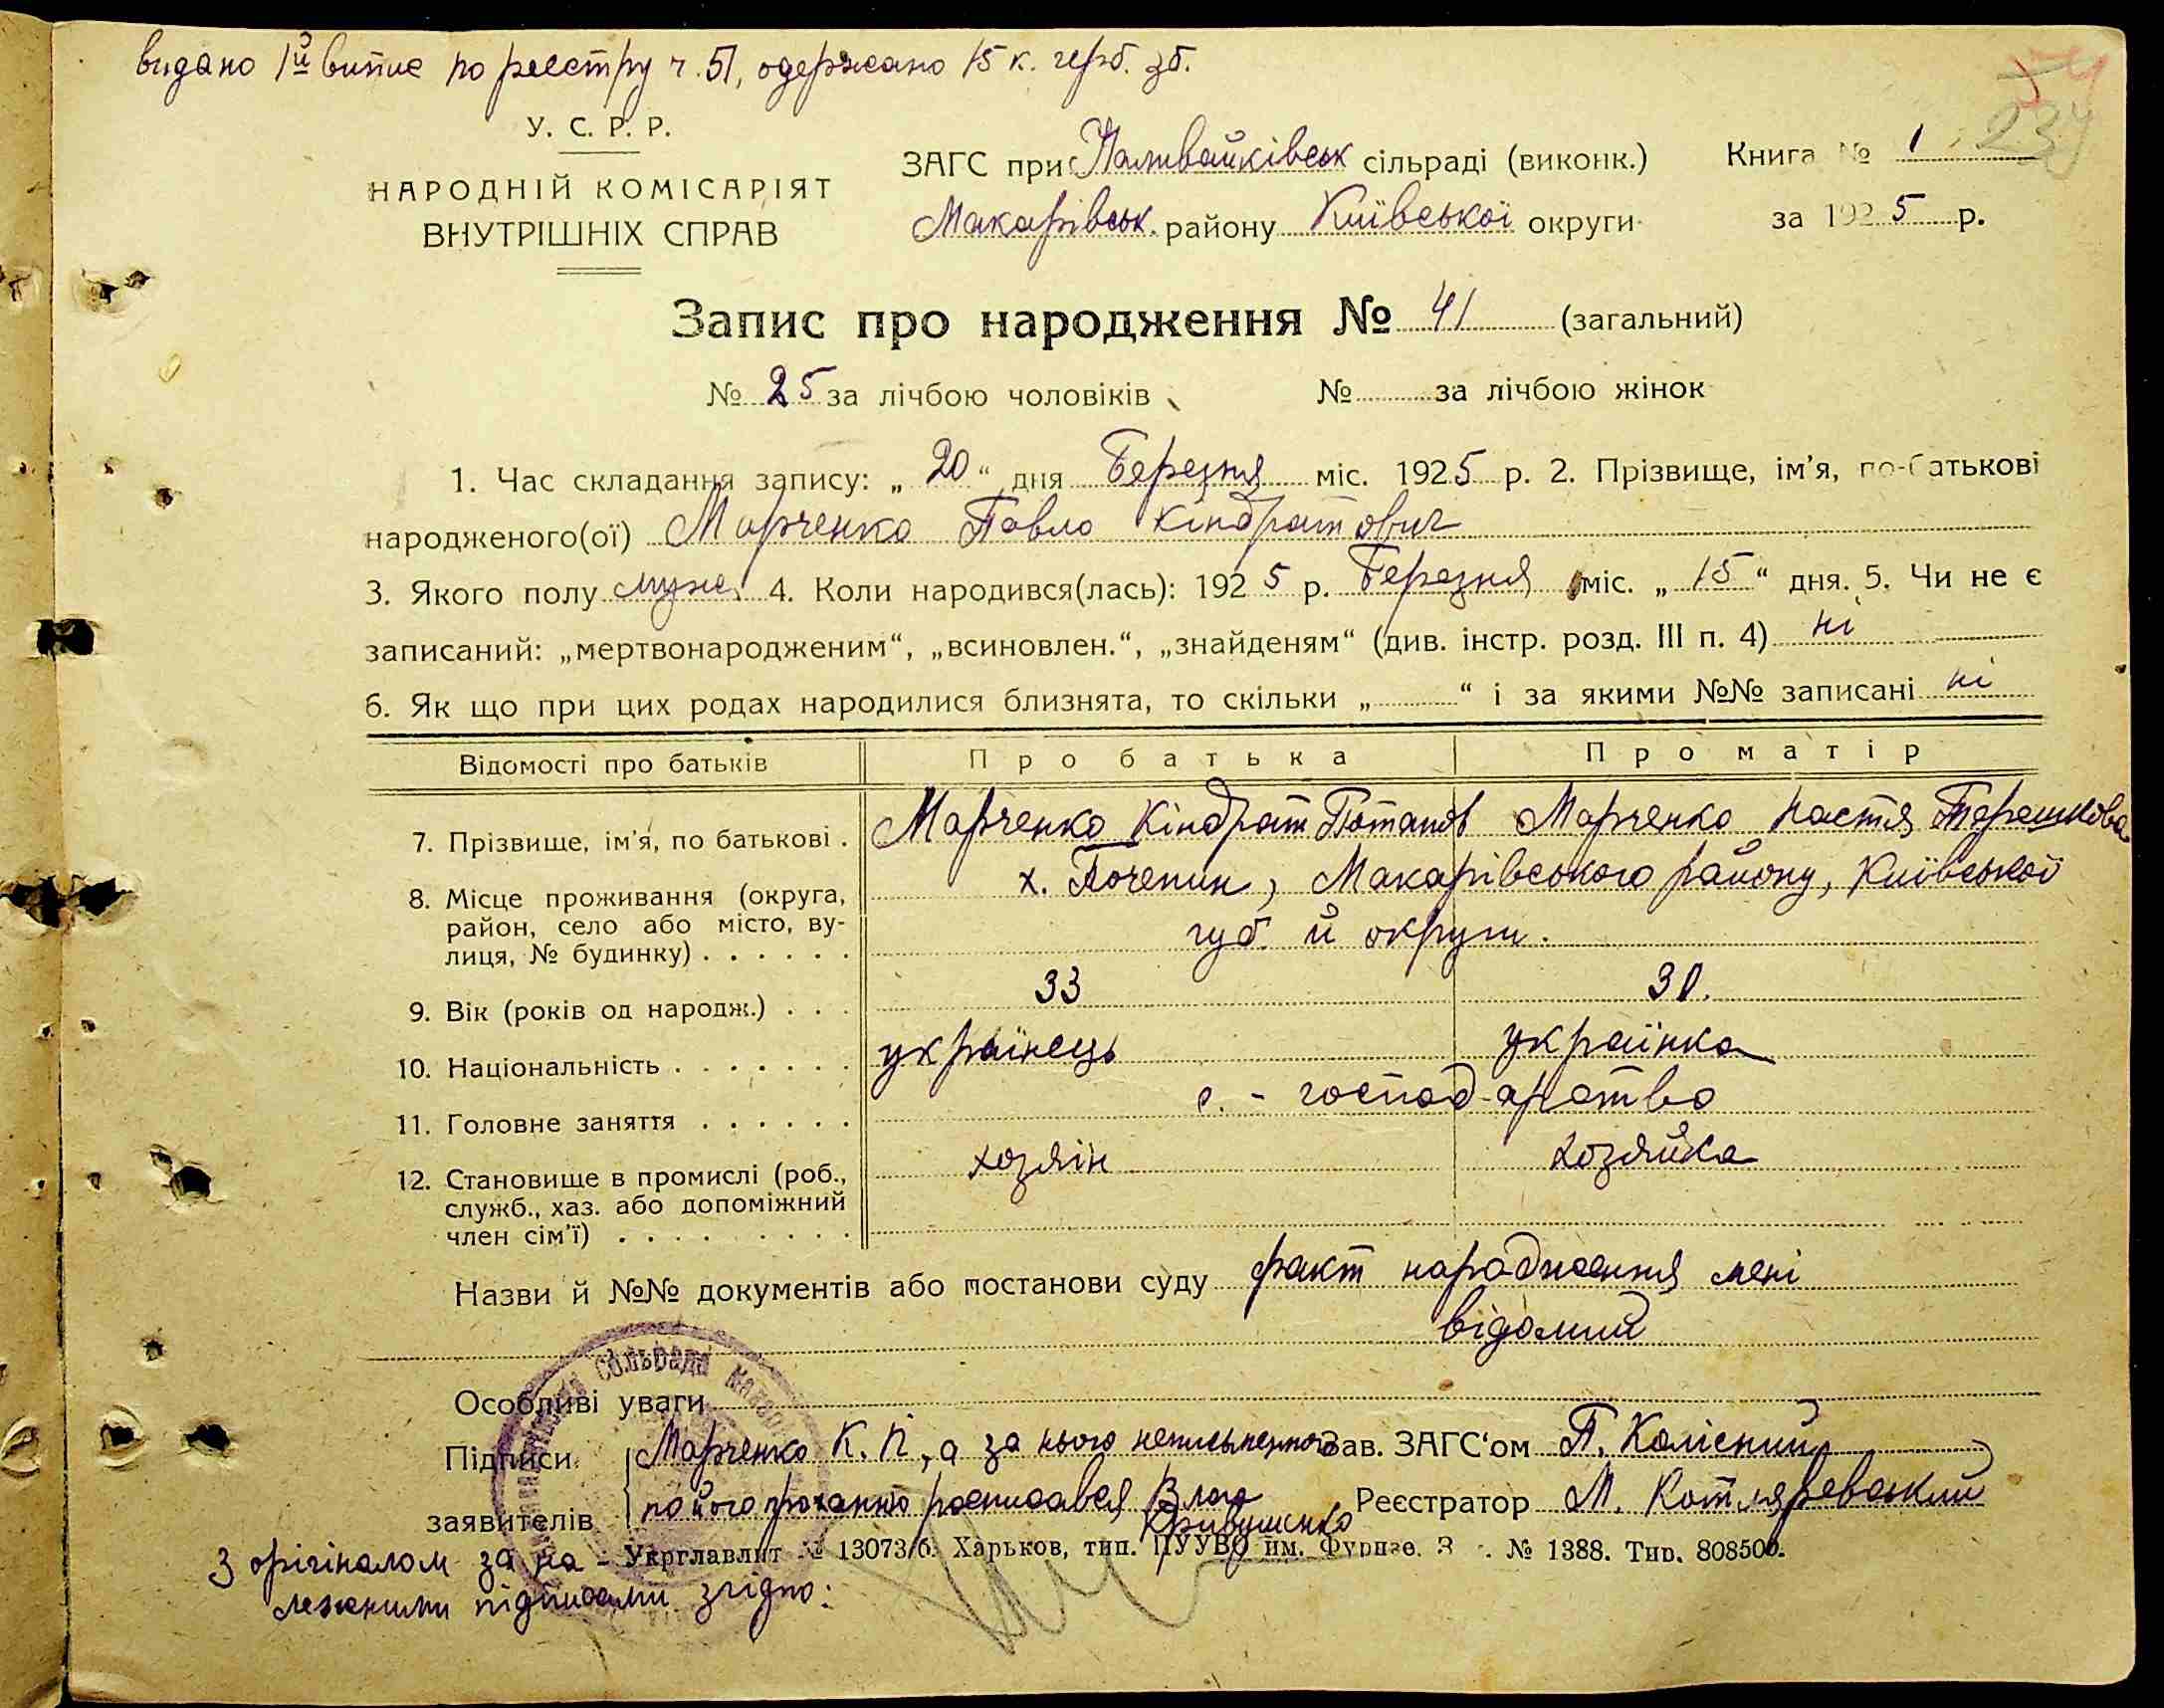 видано 1й випис по реєстру ч. 51, одержано 15 к. герб. зб.
У. С. Р. Р.
НАРОДНІЙ КОМІСАРІЯТ
ВНУТРІШНІХ СПРАВ
ЗАГС при Наливайківськ сільраді (виконк.)
Макарівськ. району Київської округи
Книга № 1
за 1925 р.
Запис про народження № 41 (загальний)
№ 25 за лічбою чоловіків № за лічбою жінок
1. Час складання запису: „20“ дня Березня міс. 1925 р. 2. Прізвище, ім'я, по-батькові
народженого(ої) Марченко Павло Кіндратович
3. Якого полу муж. 4. Коли народився(лась): 1925 р. Березня міс. „15“ дня. 5. Чи не є
записаний: „мертвонародженим“, „всиновлен.“, „знайденям“ (див. інстр. розд. III п. 4) ні
6. Як що при цих родах народилися близнята, то скільки „ “ і за якими №№ записані ні
Відомості про батьків Про батька Про матір
7. Прізвище, ім'я, по батькові . Марченко Кіндрат Потапов Марченко Настя Терешкова
8. Місце проживання (округа, х. Почепин, Макарівського району, Київської
район, село або місто, ву- губ. й округи.
лиця, № будинку) . . . . . .
9. Вік (років од народж.) . . . 33 30.
10. Національність . . . . . . . українець українка
11. Головне заняття . . . . . . с. - господарство
12. Становище в промислі (роб., хозяїн хозяйка
служб., хаз. або допоміжний
член сім'ї) . . . . . . . . .
Назви й №№ документів або постанови суду факт народження мені
відомий
Особливі уваги
Підписи Марченко К. П., а за нього неписьменного Зав. ЗАГС'ом П. Колісний
заявителів по його проханню росписався Влас Реєстратор М. Котляревський
Кривошенко
Укрглавліт № 13073/б. Харьков, тип. ПУУВО им. Фрунзе. З . № 1388. Тир. 808500.
З орігіналом за на-
лежними підписами згідно: